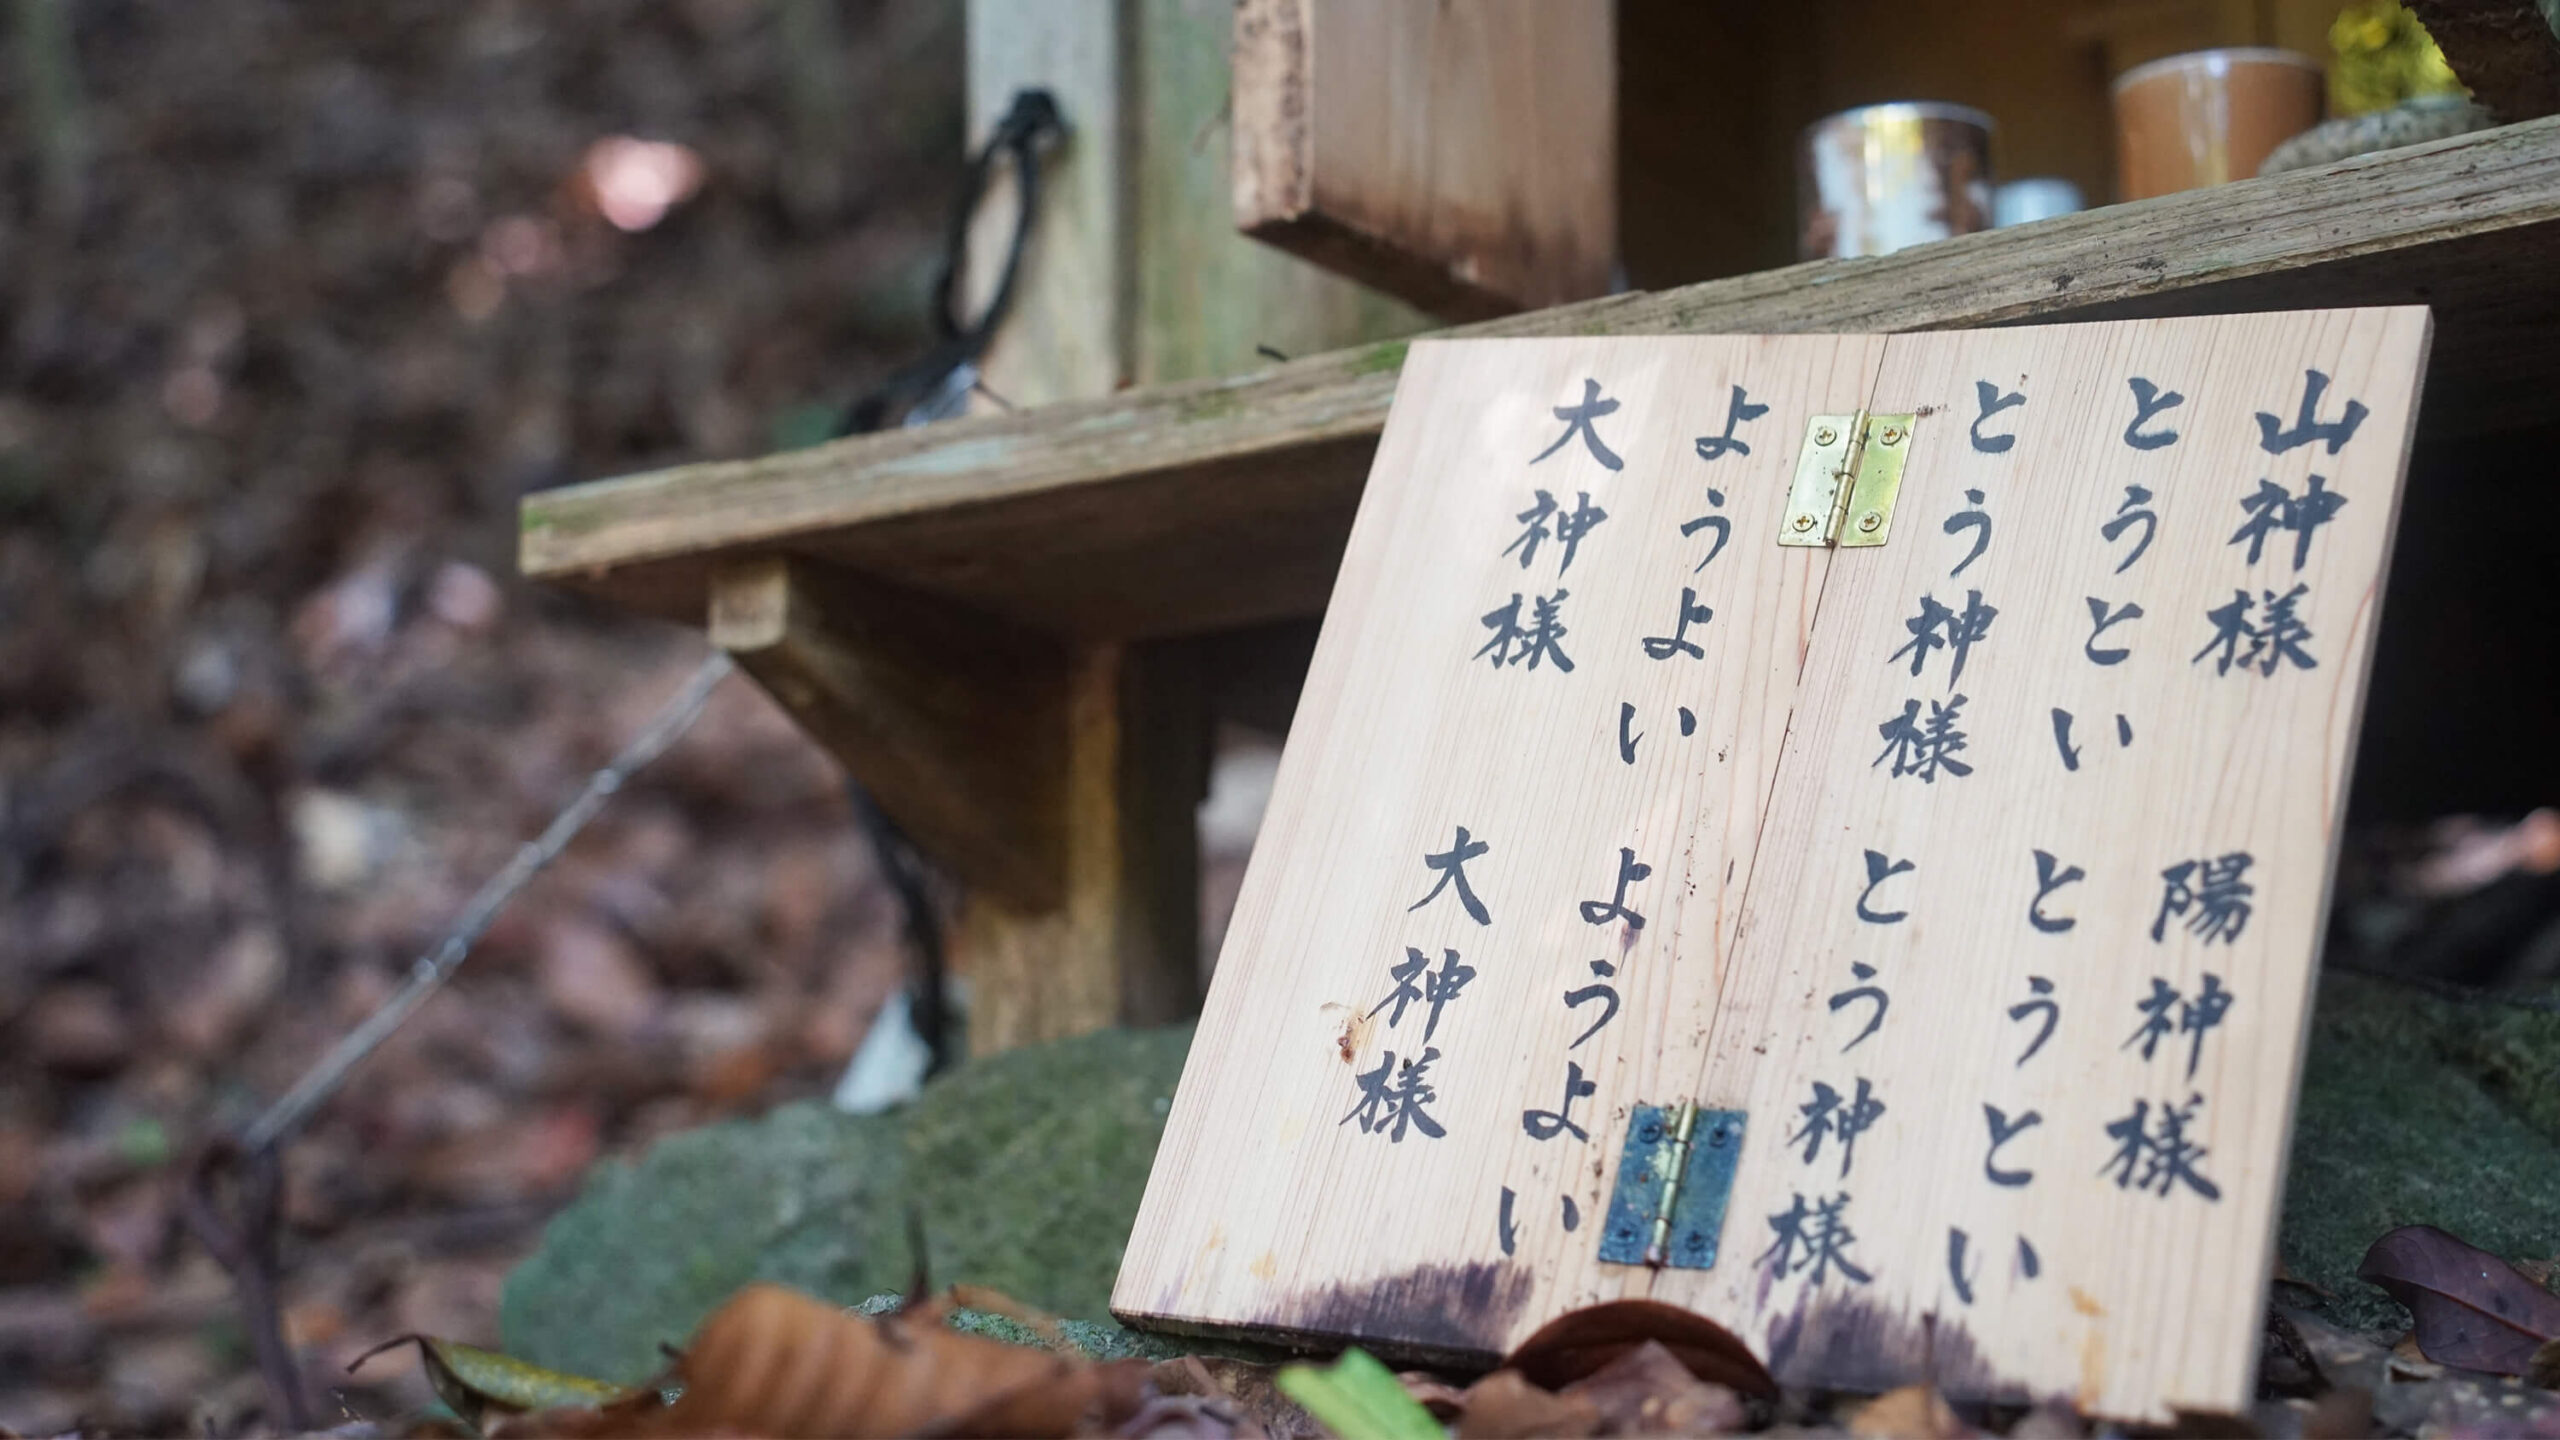 山神様　陽神様
とうとい　とうとい
とう神様　とう神様
ようよい　ようよい
大神様　大神様